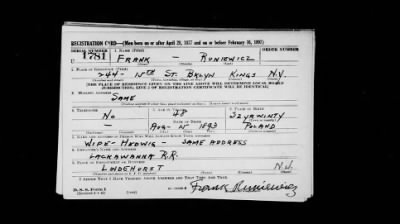 REGISTRATION CARD—(Men born on or after April 28, 1877 and on or before February 16, 1897)
SERIAL NUMBER 1. NAME (Print)
1781 FRANK — RUNIEWICZ
(First) (Middle) (Last)
2. PLACE OF RESIDENCE (Print)
244 - 15TH ST. BKLYN KINGS N.Y.
[THE PLACE OF RESIDENCE GIVEN ON THE LINE ABOVE WILL DETERMINE LOCAL BOARD
JURISDICTION; LINE 2 OF REGISTRATION CERTIFICATE WILL BE IDENTICAL]
3. MAILING ADDRESS
SAME
4. TELEPHONE 5. AGE IN YEARS 6. PLACE OF BIRTH
NO 48
DATE OF BIRTH
— AUG - 15 1893 POLAND
7. NAME AND ADDRESS OF PERSON WHO WILL ALWAYS KNOW YOUR ADDRESS
WIFE - HEDWIG — SAME ADDRESS
8. EMPLOYER'S NAME AND ADDRESS
LACKAWANNA R.R.
9. PLACE OF EMPLOYMENT OR BUSINESS
LINDEHURST N.J.
I AFFIRM THAT I HAVE VERIFIED ABOVE ANSWERS AND THAT THEY ARE TRUE.
D. S. S. Form 1 Frank Runiewicz